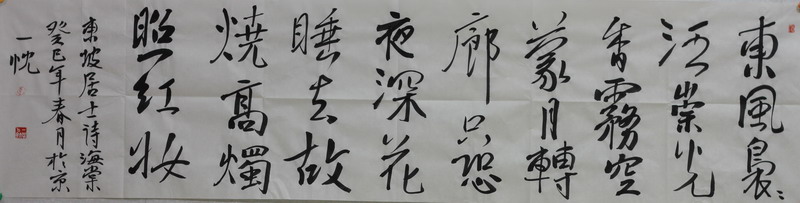 東風裊〻
泛崇光
香霧空
蒙月轉
廊只恐
夜深花
睡去故
燒高燭
照红妝
東坡居士詩海棠
癸巳年春月於京
一忱